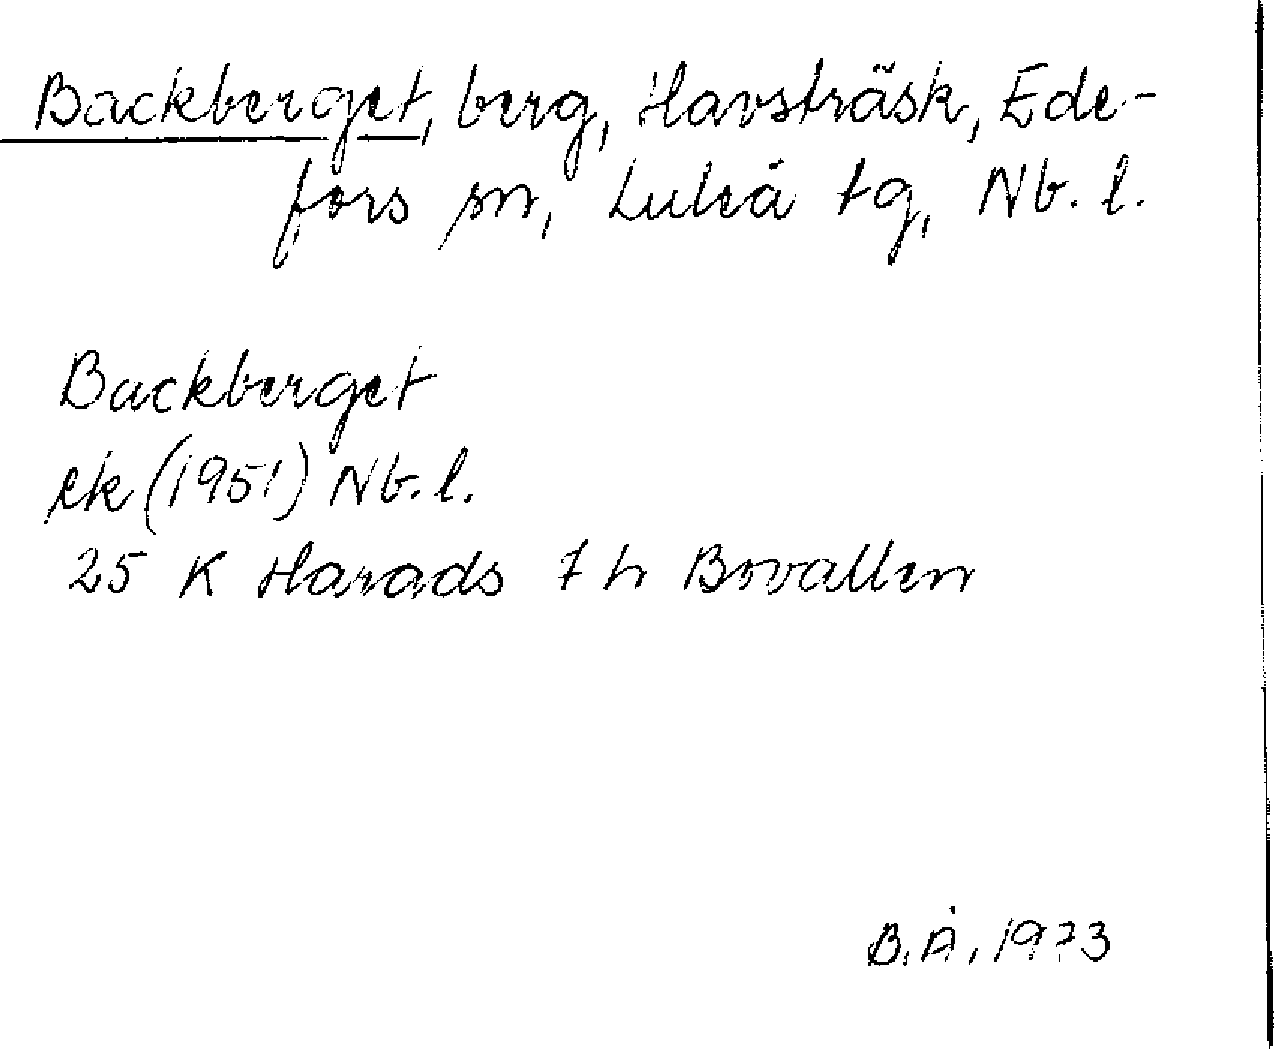 Backberget, berg, Havsträsk, Ede-
fors sn, Luleå tg, Nb. l.
Backberget
ek (1951) Nb. l.
25 K Harads 7 h Bovallen
B. Å, 1973